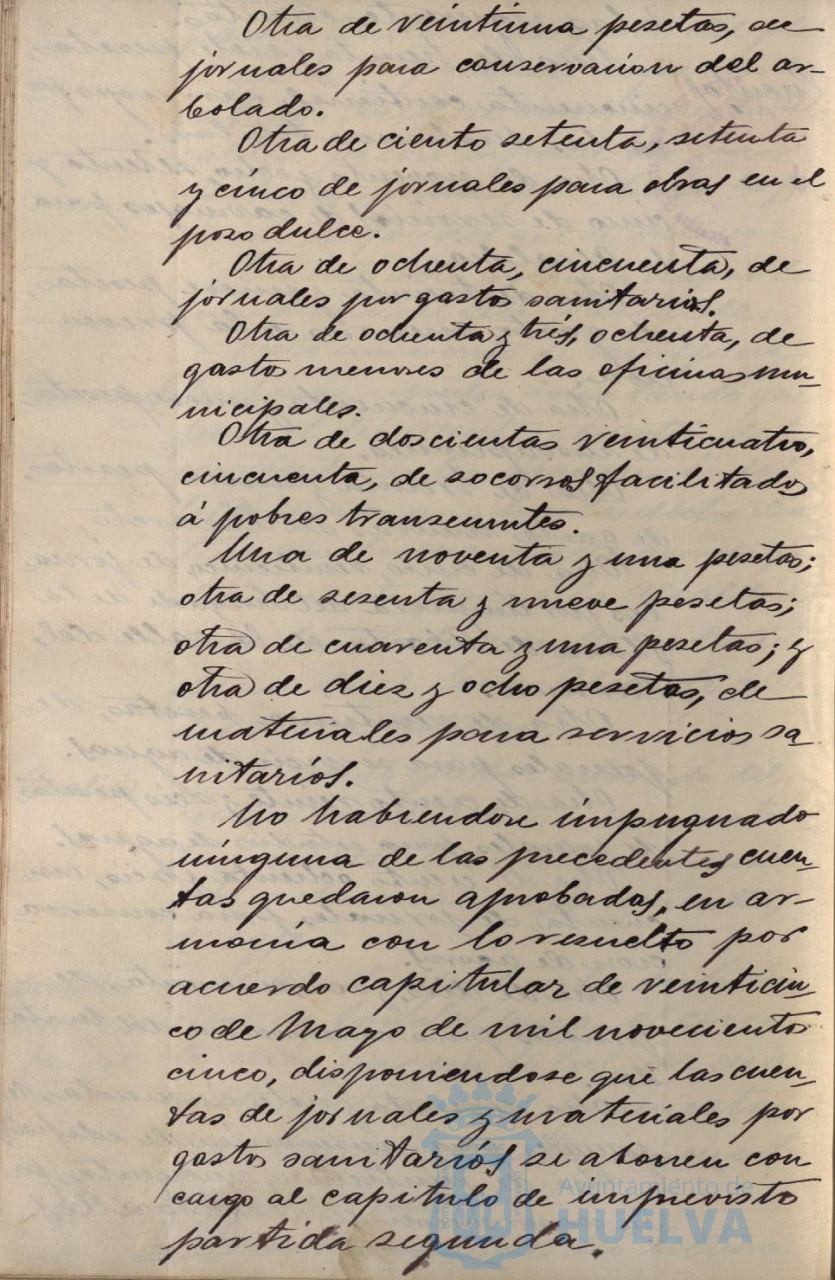 Otra de veintiuna pesetas, de
jornales para conservacion del ar-
bolado.
Otra de ciento setenta, setenta
y cinco de jornales para obras en el
pozo dulce.
Otra de ochenta, cincuenta, de
jornales por gastos sanitarios.
Otra de ochenta y trés, ochenta, de
gastos menores de las oficinas mu-
nicipales.
Otra de doscientas veinticuatro,
cincuenta, de socorros facilitados
á pobres transeuntes.
Una de noventa y una pesetas;
otra de sesenta y nueve pesetas;
otra de cuarenta y una pesetas; y
otra de diez y ocho pesetas, de
materiales para servicios sa-
nitarios.
No habiendose impugnado
ninguna de las precedentes cuen-
tas quedaron aprobadas, en ar-
monia con lo resuelto por
acuerdo capitular de veinticin-
co de Mayo de mil novecientos
cinco, disponiendose que las cuen-
tas de jornales y materiales por
gastos sanitarios se abonen con
cargo al capitulo de imprevistos
partida segunda.
Ayuntamiento de
HUELVA